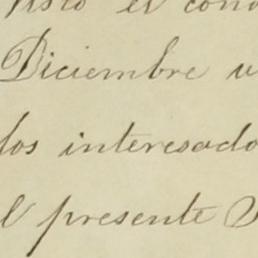 Visto el cono
Diciembre u
los interesado
l presente S